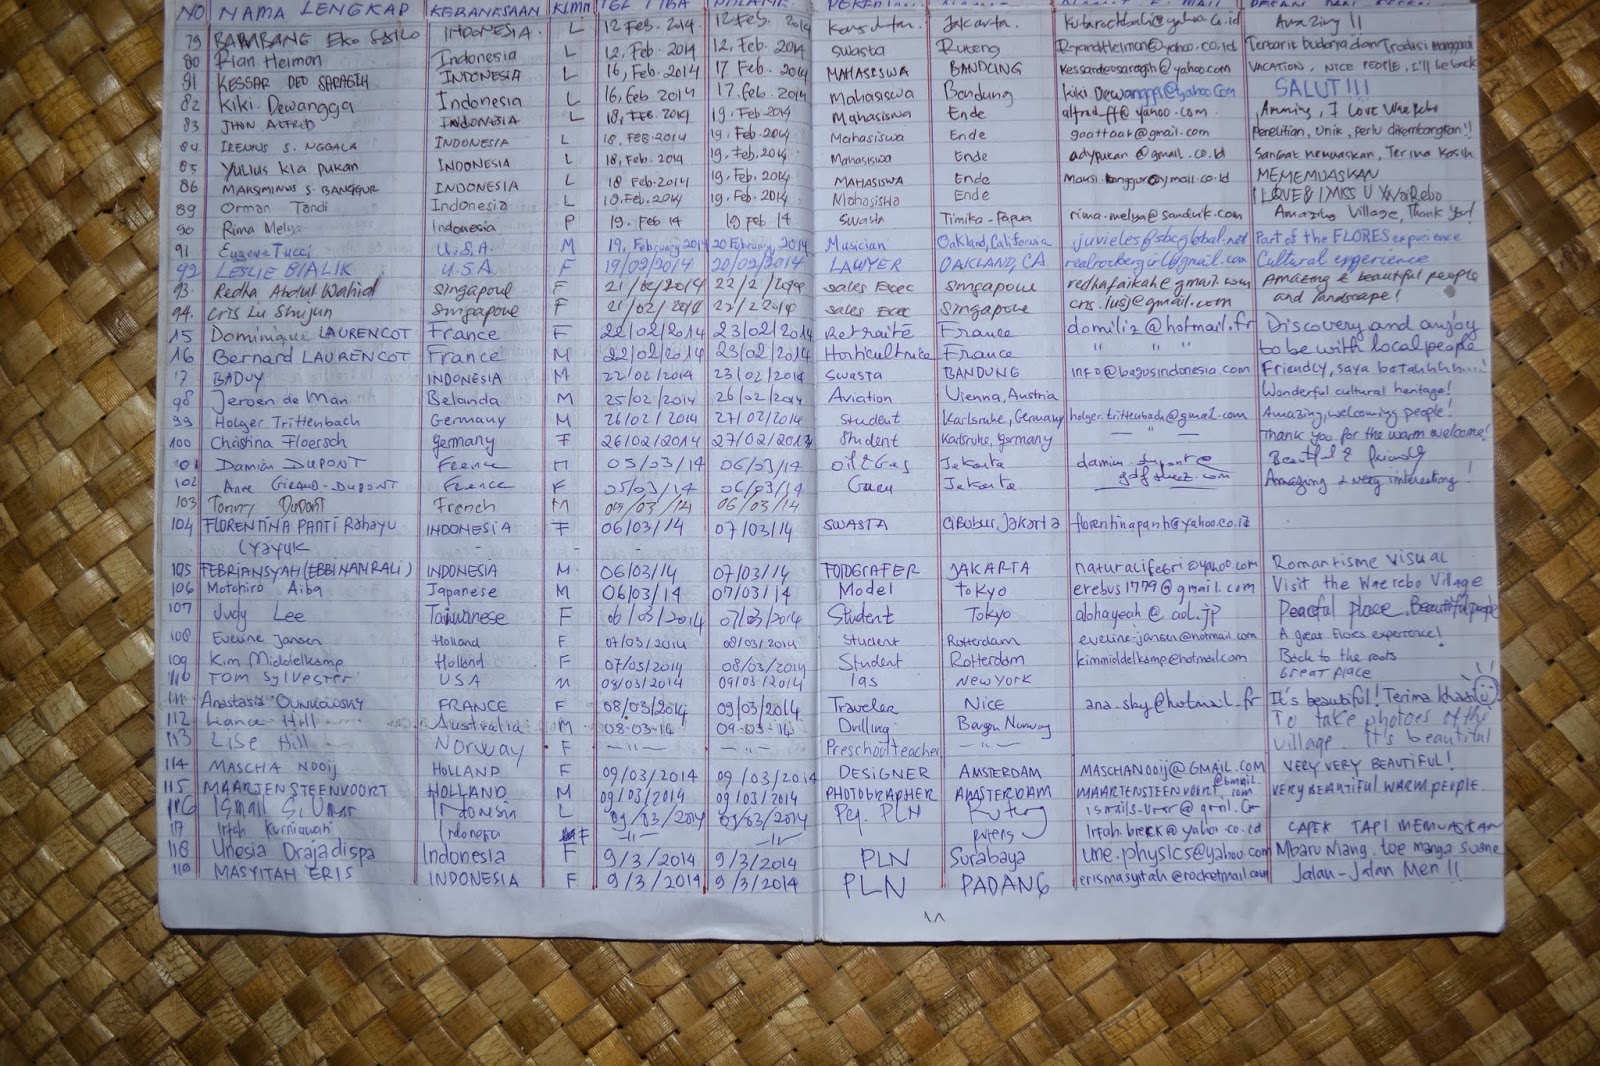 NO NAMA LENGKAP KEBANGSAAN KLMN TGL TIBA
79 BAMBANG Eko INDONESIA. L 12 Feb. 2014 12 Feb. 2014 Jakarta. Amazing !!
80 Rian Heiman Indonesia L 12, Feb. 2014 12, Feb. 2014 Swasta Ruteng RyandHeiman@yahoo.co.id Tertarik budaya dan Tradisi manggarai
81 KESSAR DEO SARAGIH INDONESIA L 16, Feb. 2014 17 Feb. 2014 MAHASISWA BANDUNG kessardeosaragih@yahoo.com VACATION, NICE PEOPLE, I'll be back
82 Kiki Dewangga Indonesia L 16, Feb 2014 17. Feb. 2014 Mahasiswa Bandung Kiki Dewangga@yahoo.com SALUT!!!
83 JHON ALFRED INDONESIA L 18, Feb. 2014 19, Feb. 2014 Mahasiswa Ende @yahoo.com
84. IRENIUS S. NGGALA INDONESIA L 18, FEB 2014 19. Feb, 2014 Mahasiswa Ende gaottaar@gmail.com Penelitian, Unik, perlu dikembangkan!!
85 Yulius kia pukan INDONESIA L 18, Feb. 2014 19. Feb, 2014 Mahasiswa Ende adypukan@gmail.co.id Sangat Memuaskan, Terima Kasih
86 MAKSIMINUS S. BANGGUR INDONESIA L 18 Feb. 2014 19, Feb, 2014 MAHASISWA Ende MEMEMUASKAN
89 Orman Tandi Indonesia L 18. Feb, 2014 19, Feb, 2014 Mahasiswa Ende I LOVE & I MISS U WaeRebo
90 Rima Melya Indonesia P 19. Feb 14 19 Feb. 14 Swasta Timika - Papua rima-melya@sandvik.com Amazing Village, Thank You!
91 Eugene Tucci U.S.A M 19, February 2014 20 February, 2014 Musician Oakland, California juvieles@sbcglobal.net Part of the FLORES experience
92 LESLIE BIALIK U.S.A. F 19/02/2014 20/02/2014 LAWYER OAKLAND, CA realrockergirl@gmail.com Cultural experience
93. Redha Abdul Wahid Singapore F 21/02/2014 22/2/2014 Sales Exec Singapore redhafaikah@gmail.com Amazing & beautiful people
94. Cris Lu Shujun Singapore F 21/02/2014 22/2 2014 sales Exec Singapore cris.lusj@gmail.com and landscape!
15 Dominique LAURENCOT France F 22/02/2014 23/02/2014 Retraité France domiliz@hotmail.fr Discovery and anjoy
16 Bernard LAURENCOT France M 22/02/2014 23/02/2014 Horticultrice France " " " to be with local people
17 BADUY INDONESIA M 22/02/2014 23/02/2014 SWASTA BANDUNG info@bagusindonesia.com Friendly, saya betahhhh.....
98 Jeroen de Man Belanda M 25/02/2014 26/02/2014 Aviation Vienna, Austria Wonderful cultural heritage!
99 Holger Trittenbach Germany M 26/02/2014 27/02/2014 Student Karlsruhe, Germany holger.trittenbach@gmail.com Amazing, welcoming people!
100 Christina Floersch Germany F 26/02/2014 27/02/2014 Student Karlsruhe, Germany — " — Thank you for the warm welcome!
101 Damien DUPONT France M 05/03/14 06/03/14 Oil & Gas Jakarta Beautiful & friendly
102 Anne GIRAUD-DUPONT France F 05/03/14 06/03/14 Guru Jakarta Amazing & very interesting!
103 Tommy Dupont French M 05/03/14 06/03/14
104 FLORENTINA PANTI Rahayu INDONESIA F 06/03/14 07/03/14 SWASTA Cibubur, Jakarta florentinapanti@yahoo.co.id
(Yayuk - -
105 FEBRIANSYAH (EBBI NAMRALI) INDONESIA M. 06/03/14 07/03/14 FOTOGRAFER JAKARTA naturalifebri@yahoo.com Romantisme Visual
106 Motohiro Aiba Japanese M 06/03/14 07/03/14 Model Tokyo erebus1779@gmail.com Visit the Waerebo Village
107 Judy Lee Taiwanese F 06/03/2014 07/03/2014 Student Tokyo alohayeah@aol.jp Peaceful place. Beautiful people
108 Eveline Jansen Holland F 07/03/2014 08/03/2014 Student Rotterdam eveline-jansen@hotmail.com A great Flores experience!
109 Kim Middelkamp Holland F 07/03/2014 08/03/2014 Student Rotterdam kimmiddelkamp@hotmail.com Back to the roots
110 Tom Sylvester USA M 08/03/2014 09/03/2014 New York Great place
111 Anastasia FRANCE F 08/03/2014 09/03/2014 Traveler Nice ana.shy@hotmail.fr It's beautiful! Terima khasi
112 Hill Australia M 08-03-14 09-03-14 Drilling Bergen Norway To take photoes of the
113 Lise Hill Norway F — " — — " — Preschoolteacher — " — village. It's beautiful
114 MASCHA NOOIJ HOLLAND F 09/03/2014 09/03/2014 DESIGNER AMSTERDAM MASCHANOOIJ@GMAIL.COM VERY VERY BEAUTIFUL!
115 MAARTEN STEENVOORT HOLLAND M 09/03/2014 09/03/2014 PHOTOGRAPHER AMSTERDAM MAARTENSTEENVOORT@gmail.com VERY BEAUTIFUL WARM PEOPLE.
116 Ismail S. Umar Indonesia L 09/03/2014 09/03/2014 Peg. PLN Ruteng
117 Irfah Kurniawan Indonesia F — " — — " — Ruteng @yahoo.co.id CAPEK TAPI MEMUASKAN
118 Unesia Drajadispa Indonesia F 9/3/2014 9/3/2014 PLN Surabaya une.physics@yahoo.com Mbaru Niang, toe manga suane
119 MASYITAH ERIS INDONESIA F 9/3/2014 9/3/2014 PLN PADANG erismasyitah@rocketmail.com Jalan-Jalan Men !!